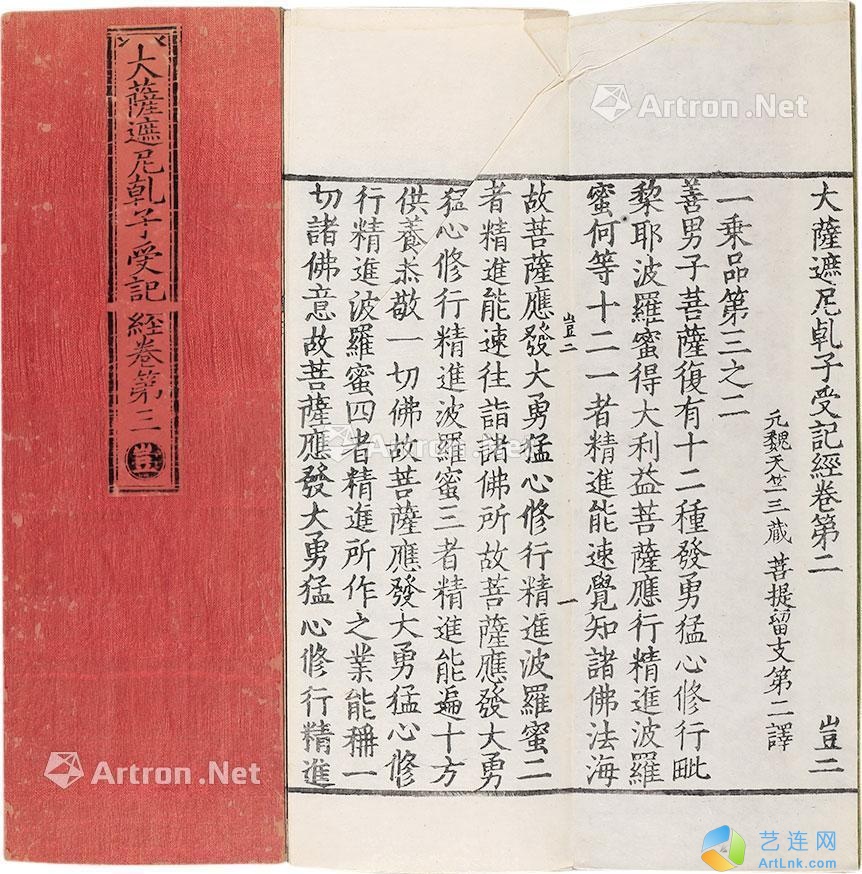 大薩遮尼乹子受記經卷第二 豈二
元魏天竺三藏菩提留支第二譯
一乗品第三之二
善男子菩薩復有十二種發勇猛心修行毗
棃耶波羅蜜得大利益菩薩應行精進波羅
蜜何等十二一者精進能速覺知諸佛法海
豈二 一
故菩薩應發大勇猛心修行精進波羅蜜二
者精進能速往詣諸佛所故菩薩應發大勇
猛心修行精進波羅蜜三者精進能遍十方
供養恭敬一切佛故菩薩應發大勇猛心修
行精進波羅蜜四者精進所作之業能稱一
切諸佛意故菩薩應發大勇猛心修行精進
大薩遮尼乹子受記經卷第三 豈
Artron.Net
Artron.Net
Artron.Net
Artron.Net
Artron.Net
Artron.Net
艺连网
ArtLnk.com